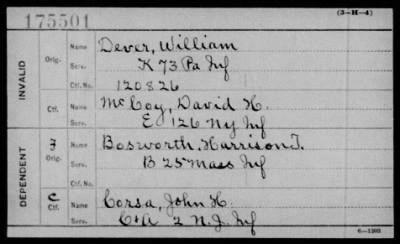 175501
(3-H-4)
INVALID
Orig.
Name Dever, William
Serv. K 73 Pa Inf
Ctf. No. 120826
Ctf.
Name McCoy, David H.
Serv. E 126 Ny Inf
DEPENDENT
F
Orig.
Name Bosworth, Harrison T.
Serv. B 25 Mass Inf
Ctf. No.
C
Ctf.
Name Corsa, John H.
Serv. C&A 2 N.J. Inf